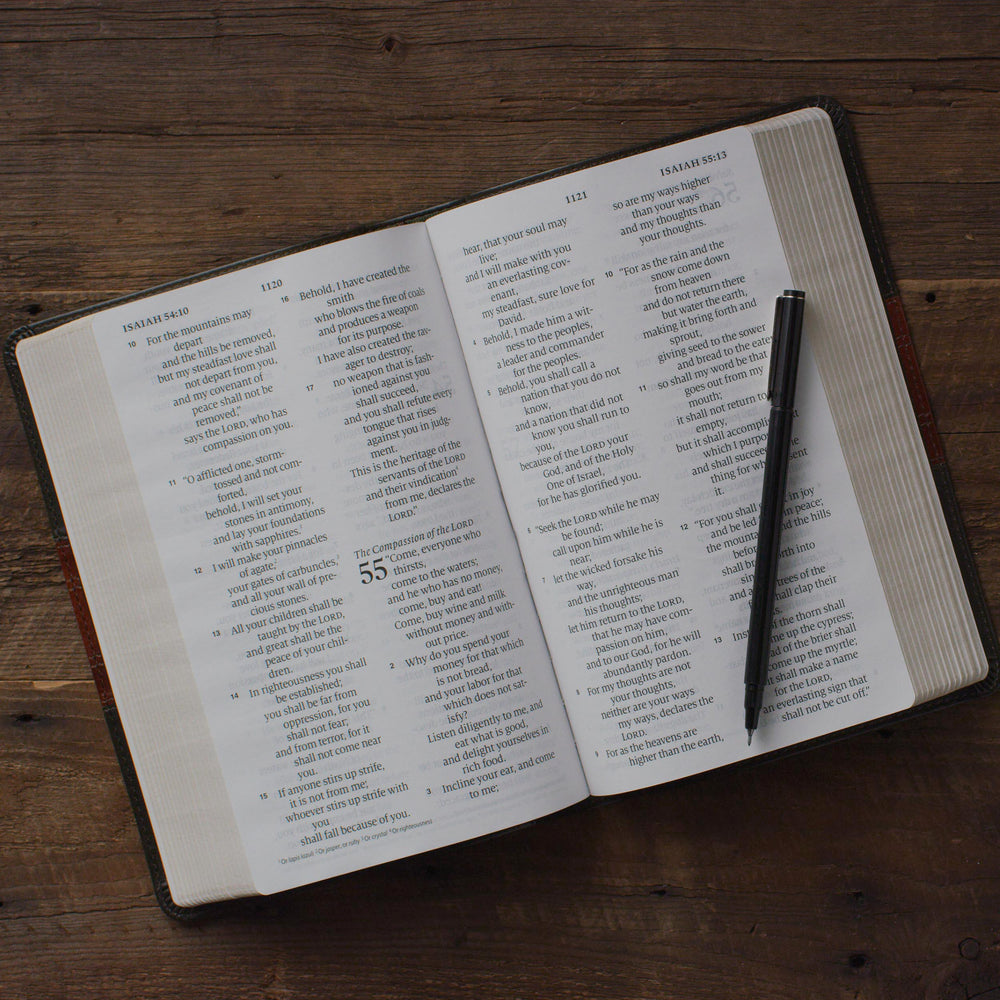 ISAIAH 54:10
1120
10 For the mountains may
depart
and the hills be removed,
but my steadfast love shall
not depart from you,
and my covenant of
peace shall not be
removed,”
says the LORD, who has
compassion on you.
11 “O afflicted one, storm-
tossed and not com-
forted,
behold, I will set your
stones in antimony,
and lay your foundations
with sapphires.¹
12 I will make your pinnacles
of agate,²
your gates of carbuncles,³
and all your wall of pre-
cious stones.
13 All your children shall be
taught by the LORD,
and great shall be the
peace of your chil-
dren.
14 In righteousness you shall
be established;
you shall be far from
oppression, for you
shall not fear;
and from terror, for it
shall not come near
you.
15 If anyone stirs up strife,
it is not from me;
whoever stirs up strife with
you
shall fall because of you.
16 Behold, I have created the
smith
who blows the fire of coals
and produces a weapon
for its purpose.
I have also created the rav-
ager to destroy;
17 no weapon that is fash-
ioned against you
shall succeed,
and you shall refute every
tongue that rises
against you in judg-
ment.
This is the heritage of the
servants of the LORD
and their vindication⁴
from me, declares the
LORD.”
The Compassion of the LORD
55 “Come, everyone who
thirsts,
come to the waters;
and he who has no money,
come, buy and eat!
Come, buy wine and milk
without money and with-
out price.
2 Why do you spend your
money for that which
is not bread,
and your labor for that
which does not sat-
isfy?
Listen diligently to me, and
eat what is good,
and delight yourselves in
rich food.
3 Incline your ear, and come
to me;
¹ Or lapis lazuli ² Or jasper, or ruby ³ Or crystal ⁴ Or righteousness
1121
ISAIAH 55:13
hear, that your soul may
live;
and I will make with you
an everlasting cov-
enant,
my steadfast, sure love for
David.
4 Behold, I made him a wit-
ness to the peoples,
a leader and commander
for the peoples.
5 Behold, you shall call a
nation that you do not
know,
and a nation that did not
know you shall run to
you,
because of the LORD your
God, and of the Holy
One of Israel,
for he has glorified you.
6 “Seek the LORD while he may
be found;
call upon him while he is
near;
7 let the wicked forsake his
way,
and the unrighteous man
his thoughts;
let him return to the LORD,
that he may have com-
passion on him,
and to our God, for he will
abundantly pardon.
8 For my thoughts are not
your thoughts,
neither are your ways
my ways, declares the
LORD.
9 For as the heavens are
higher than the earth,
so are my ways higher
than your ways
and my thoughts than
your thoughts.
10 “For as the rain and the
snow come down
from heaven
and do not return there
but water the earth,
making it bring forth and
sprout,
giving seed to the sower
and bread to the eater,
11 so shall my word be that
goes out from my
mouth;
it shall not return to
empty,
but it shall accomplish
which I purpose,
and shall succeed
thing for which sent
it.
12 “For you shall in joy
and be led in peace;
the mountains and the hills
before
shall break forth into
and trees of the
shall clap their
13 Instead of the thorn shall
come up the cypress;
instead of the brier shall
come up the myrtle;
it shall make a name
for the LORD,
an everlasting sign that
shall not be cut off.”